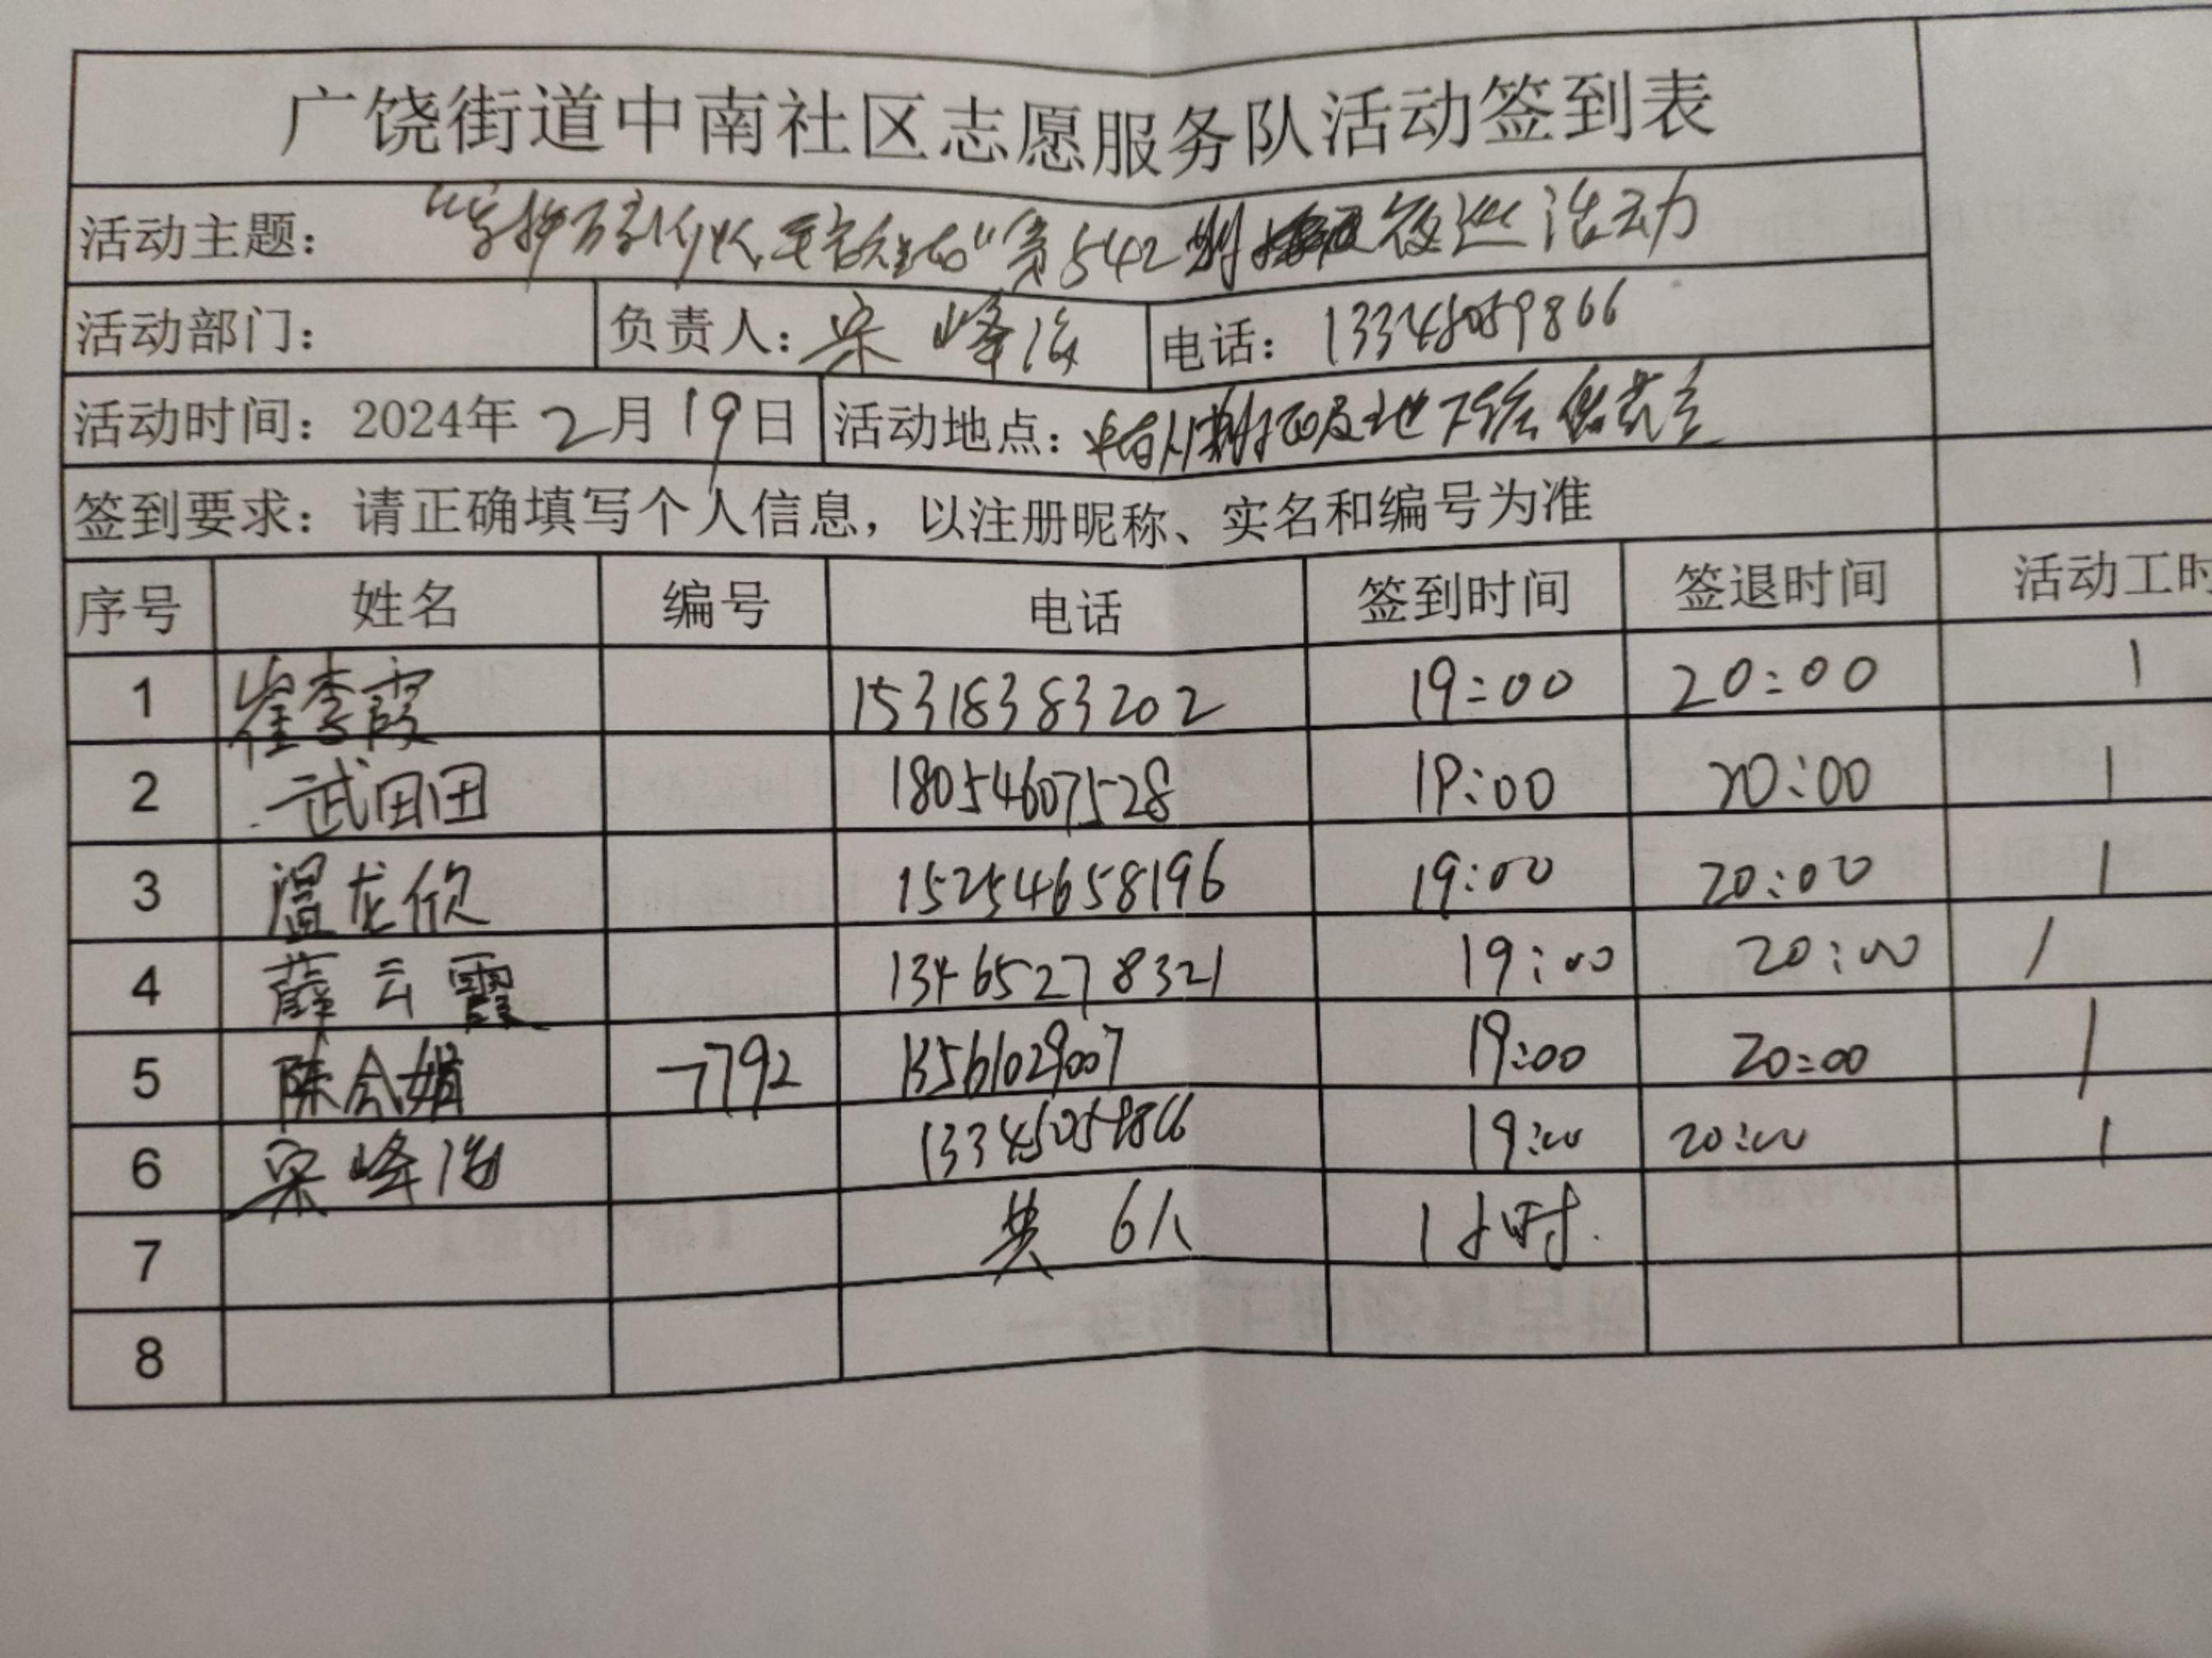 广饶街道中南社区志愿服务队活动签到表
活动主题： 第542 夜巡活动
活动部门： 负责人：宋峰治 电话：13345059866
活动时间：2024年2月19日 活动地点： 及地下
签到要求：请正确填写个人信息，以注册昵称、实名和编号为准
序号 姓名 编号 电话 签到时间 签退时间 活动工时
1 崔李霞 15318383202 19:00 20:00 1
2 武田田 18054607528 19:00 20:00 1
3 温龙欣 15254658196 19:00 20:00 1
4 薛云霞 13465278321 19:00 20:00 1
5 陈会娟 7792 13561029007 19:00 20:00 1
6 宋峰治 13345059866 19:00 20:00 1
7 共 6人 1小时.
8